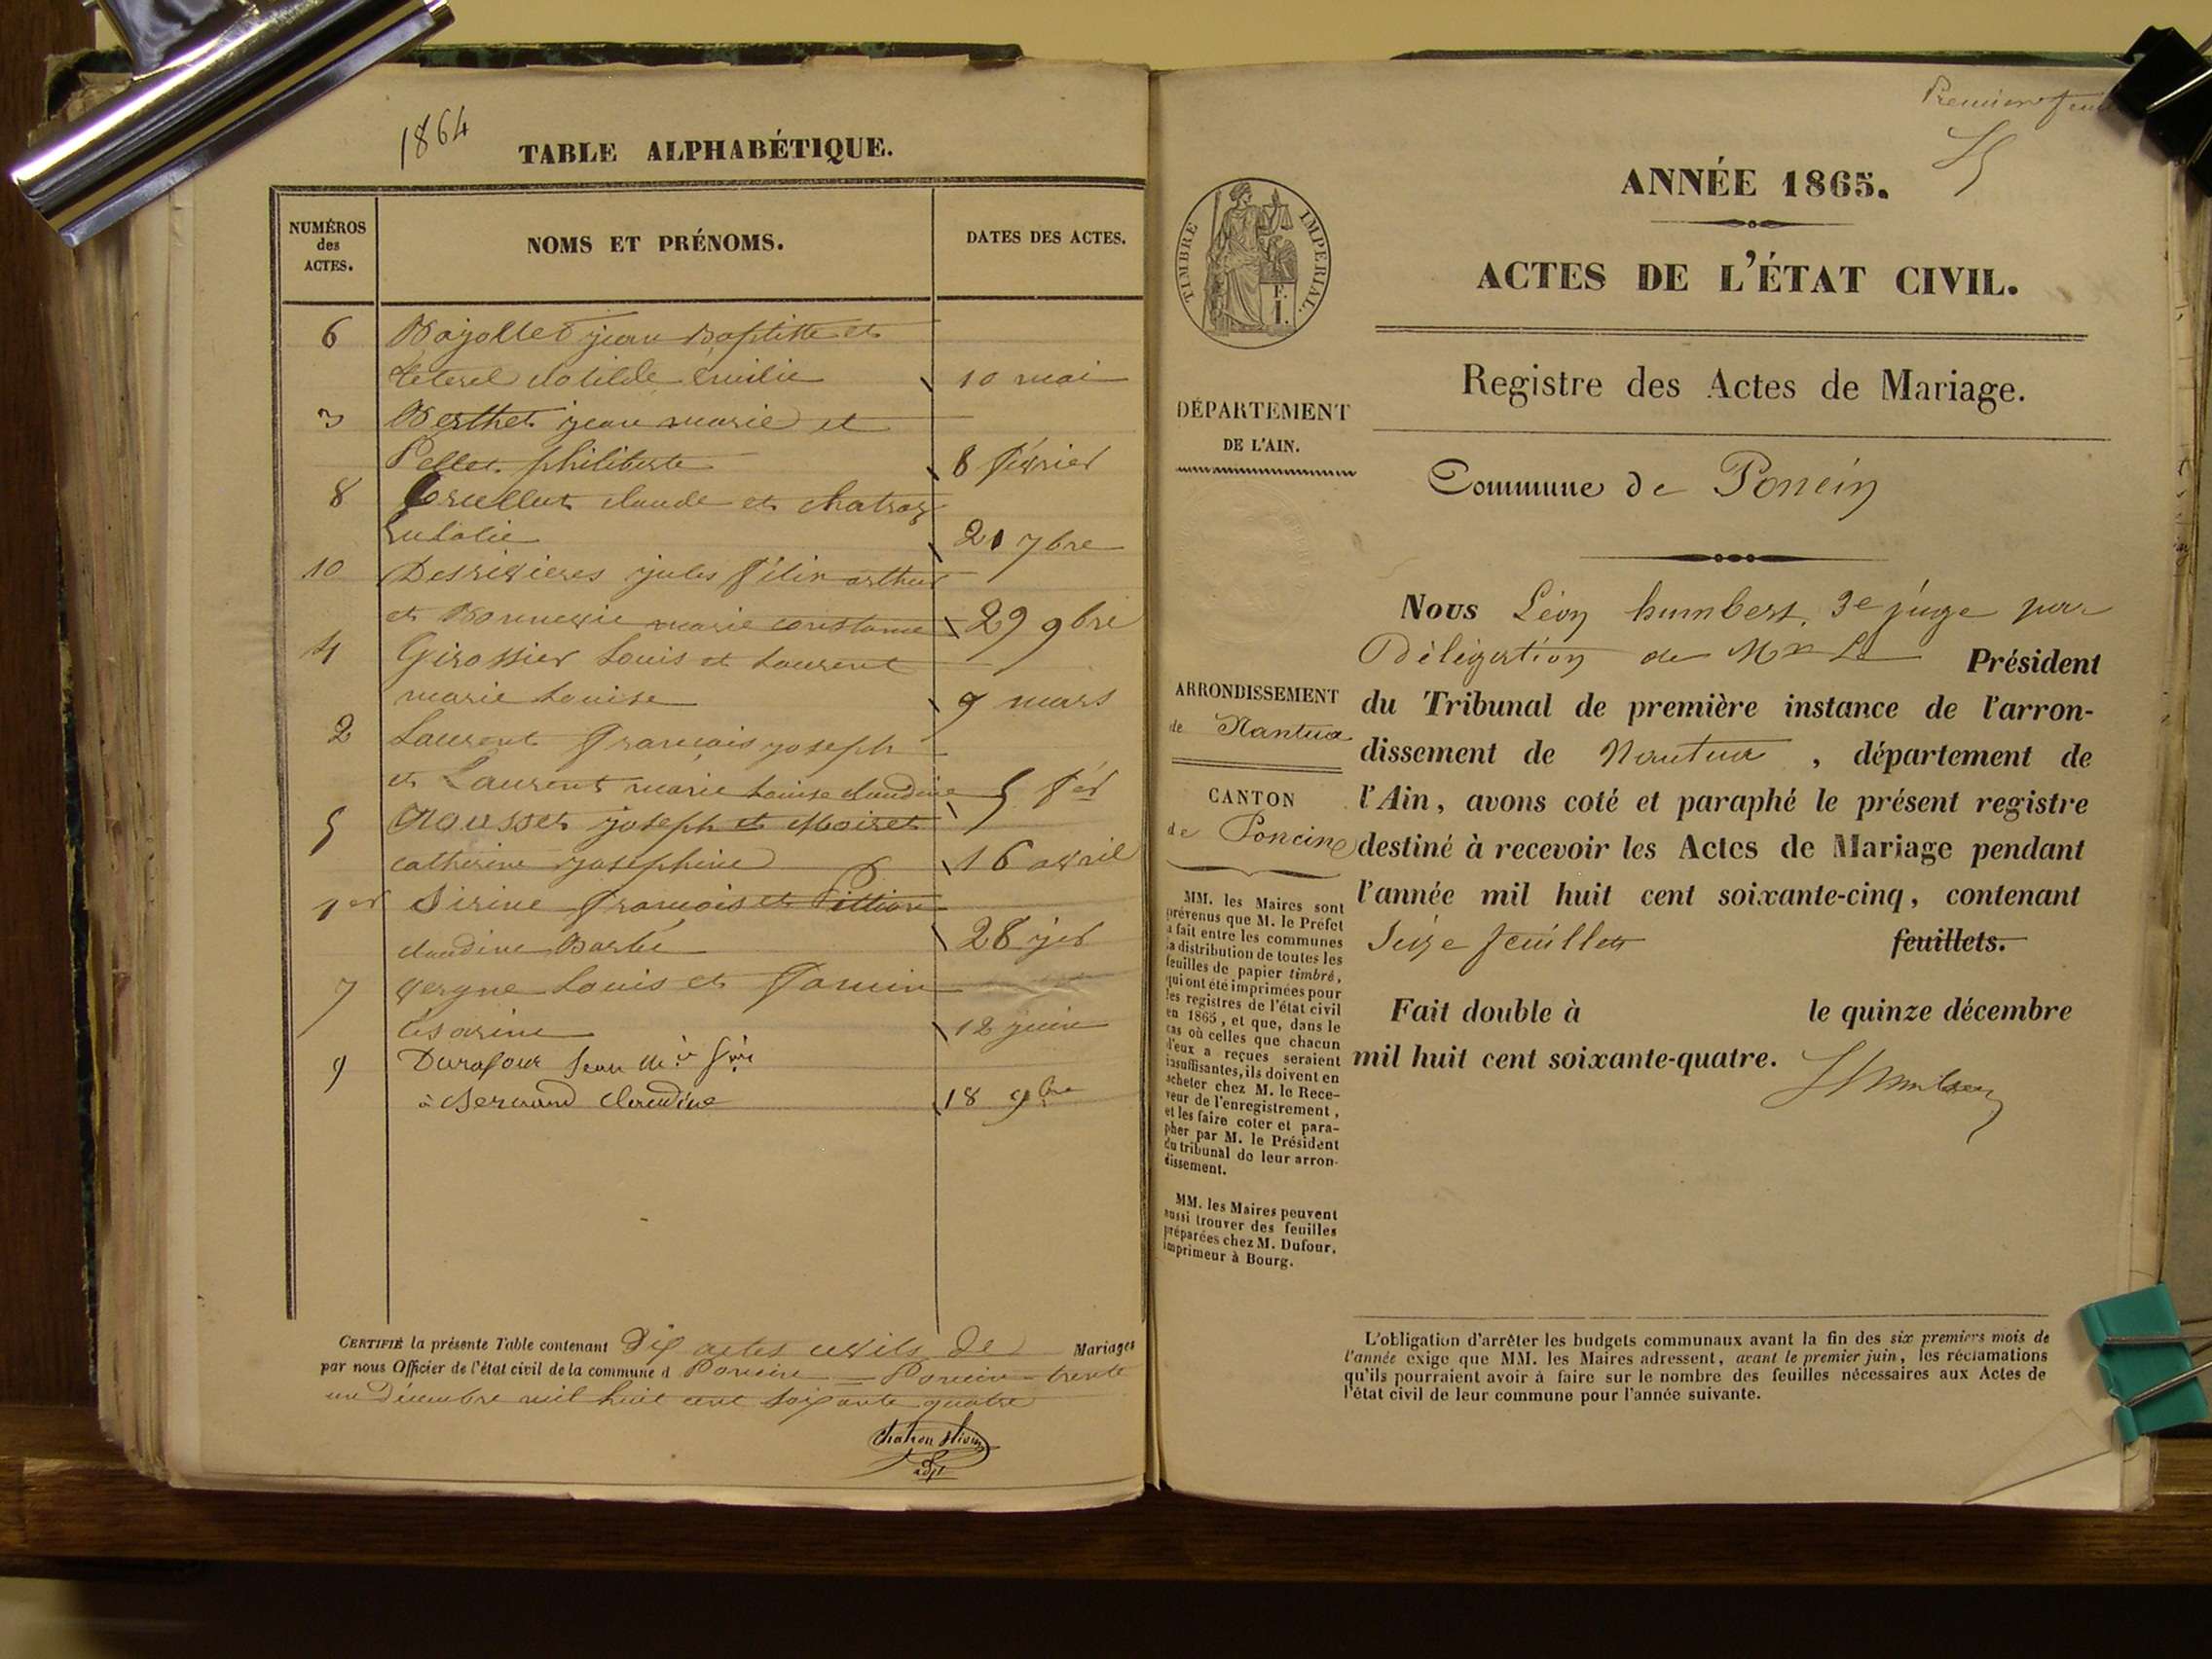 1864
TABLE ALPHABÉTIQUE.
NUMÉROS
des
ACTES.
NOMS ET PRÉNOMS.
DATES DES ACTES.
6 jean Baptiste et
Clotilde Emilie 10 mai
3 Berthet jean marie et
Pellet philiberte 8 février
8 claude et chatray
Eulalie 21 7bre
10 jules félix arthur
et marie constance 29 9bre
4 Girossier Louis et Laurent
marie Louise 9 mars
2 Laurent françois joseph
et Laurent marie Louise claudine 5 fér
5 Mousset joseph et Moiret
catherine josephine 16 avril
1er Sirine françois et
claudine 28 jer
7 vergne Louis et
Césarine 12 juin
9 Durafour Jean
à Bernand Claudine 18 9bre
CERTIFIÉ la présente Table contenant Dix actes civils de Mariages
par nous Officier de l'état civil de la commune d Poncin = Poncin trente
un Décembre mil huit cent soixante quatre
adjt
Premier feui
ANNÉE 1865.
TIMBRE IMPERIAL.
ACTES DE L'ÉTAT CIVIL.
Registre des Actes de Mariage.
DÉPARTEMENT
DE L'AIN.
Commune de Poncin
Nous Léon humbert, 3e juge par
Déligation de Mr Le Président
du Tribunal de première instance de l'arron-
dissement de Nantua , département de
l'Ain, avons coté et paraphé le présent registre
destiné à recevoir les Actes de Mariage pendant
l'année mil huit cent soixante-cinq, contenant
Seize feuillets feuillets.
Fait double à le quinze décembre
mil huit cent soixante-quatre.
ARRONDISSEMENT
de Nantua
CANTON
de Poncin
MM. les Maires sont
prévenus que M. le Préfet
a fait entre les communes
la distribution de toutes les
feuilles de papier timbré,
qui ont été imprimées pour
les registres de l'état civil
en 1865, et que, dans le
cas où celles que chacun
d'eux a reçues seraient
insuffisantes, ils doivent en
acheter chez M. le Rece-
veur de l'enregistrement,
et les faire coter et para-
pher par M. le Président
du tribunal de leur arron-
dissement.
MM. les Maires peuvent
aussi trouver des feuilles
préparées chez M. Dufour,
imprimeur à Bourg.
L'obligation d'arrêter les budgets communaux avant la fin des six premiers mois de
l'année exige que MM. les Maires adressent, avant le premier juin, les réclamations
qu'ils pourraient avoir à faire sur le nombre des feuilles nécessaires aux Actes de
l'état civil de leur commune pour l'année suivante.